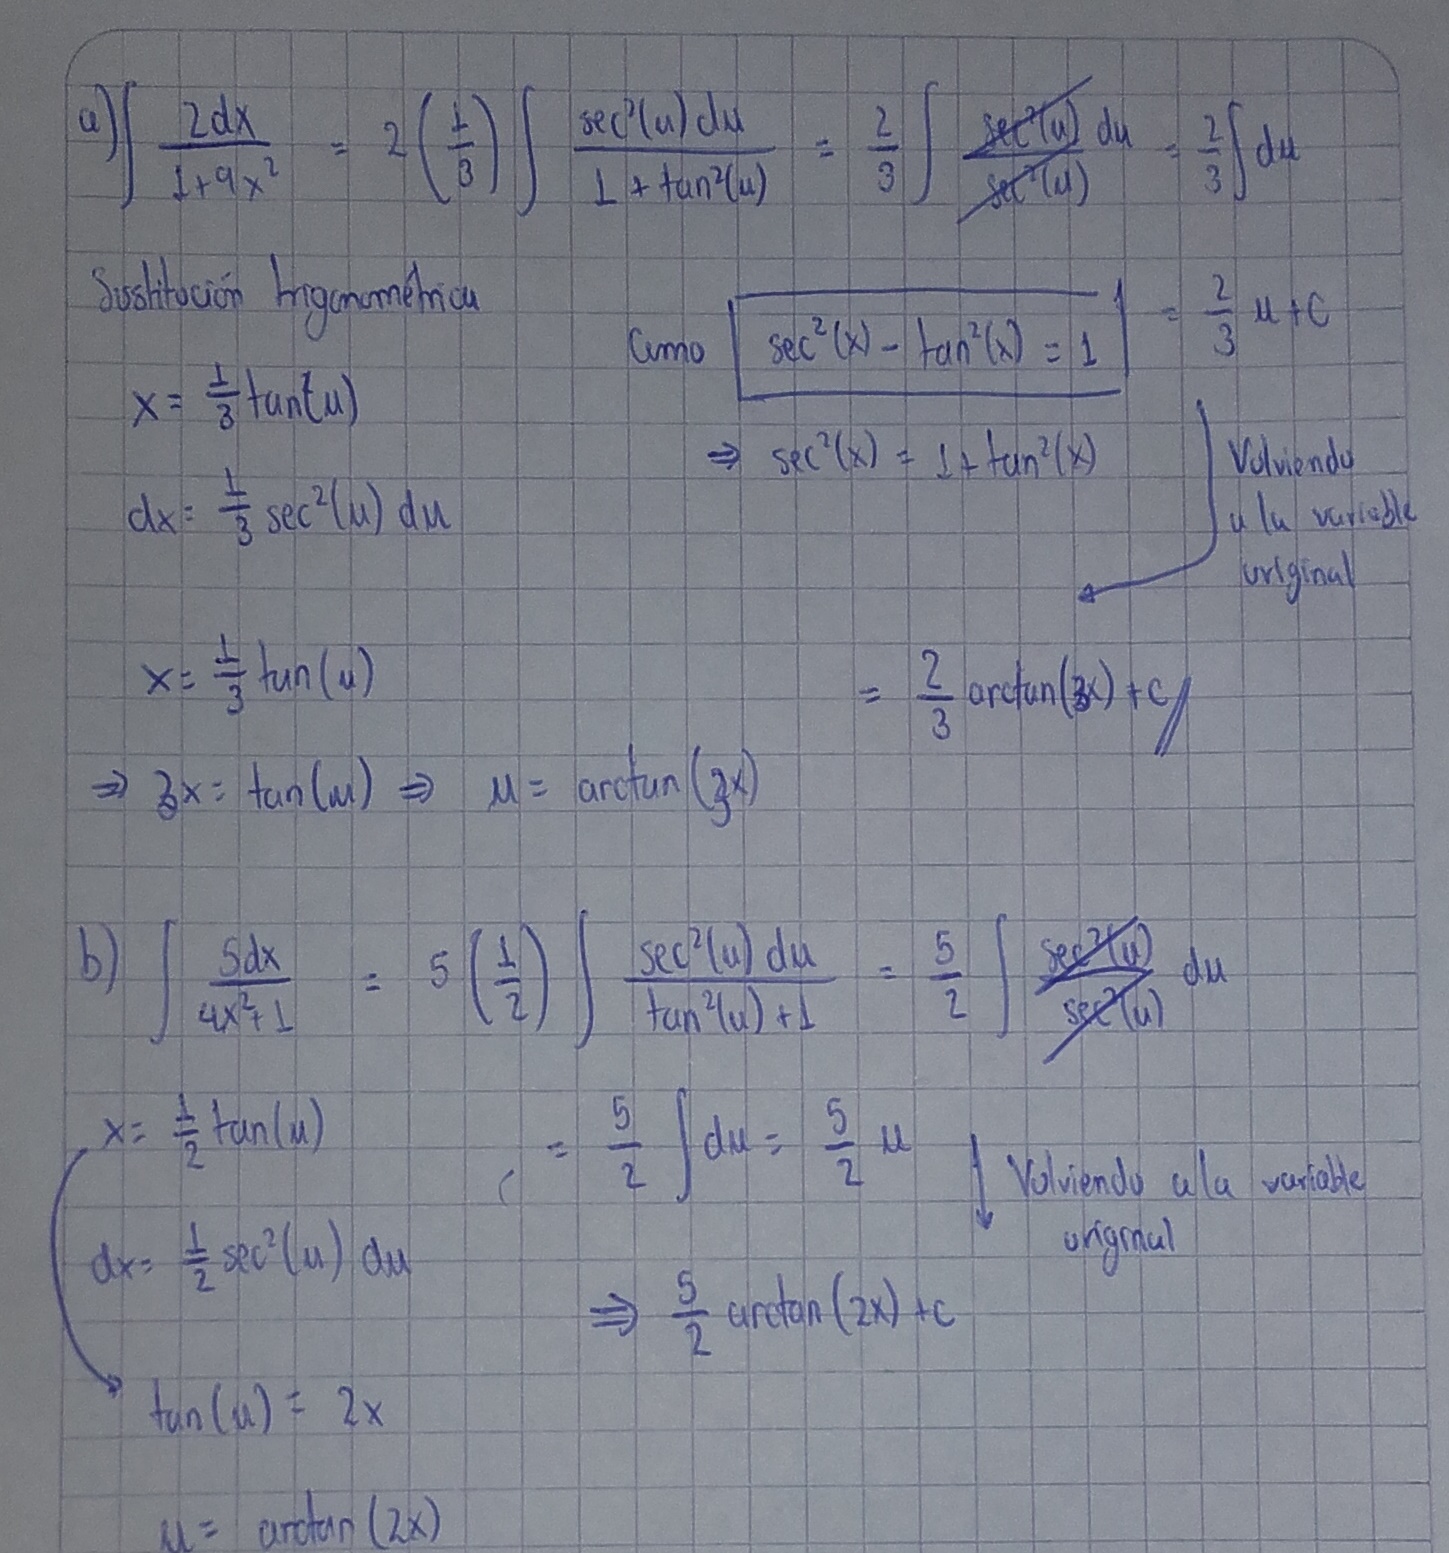 a) ∫ 2dx / (1+9x²) = 2 (1/3) ∫ sec²(u) du / (1 + tan²(u)) = 2/3 ∫ sec²(u) / sec²(u) du = 2/3 ∫ du
Sustitución trigonométrica
Como sec²(x) - tan²(x) = 1
= 2/3 u + c
x = 1/3 tan(u)
⇒ sec²(x) = 1 + tan²(x)
Volviendo
a la variable
original
dx = 1/3 sec²(u) du
x = 1/3 tan(u)
= 2/3 arctan(3x) + c //
⇒ 3x = tan(u) ⇒ u = arctan(3x)
b) ∫ 5dx / (4x²+1) = 5 (1/2) ∫ sec²(u) du / (tan²(u) + 1) = 5/2 ∫ sec²(u) / sec²(u) du
x = 1/2 tan(u)
= 5/2 ∫ du = 5/2 u
Volviendo a la variable
original
dx = 1/2 sec²(u) du
⇒ 5/2 arctan(2x) + c
tan(u) = 2x
u = arctan(2x)